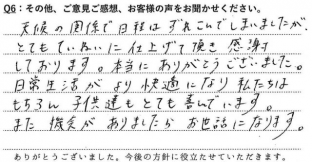 Q6：その他、ご意見ご感想、お客様の声をお聞かせください。
天候の関係で日程はずれこんでしまいましたが、
とてもていねいに仕上げて頂き感謝
しております。本当にありがとうございました。
日常生活がより快適になり私たちは
もちろん子供達もとても喜んでいます。
また機会がありましたらお世話になります。
ありがとうございました。今後の方針に役立たせていただきます。